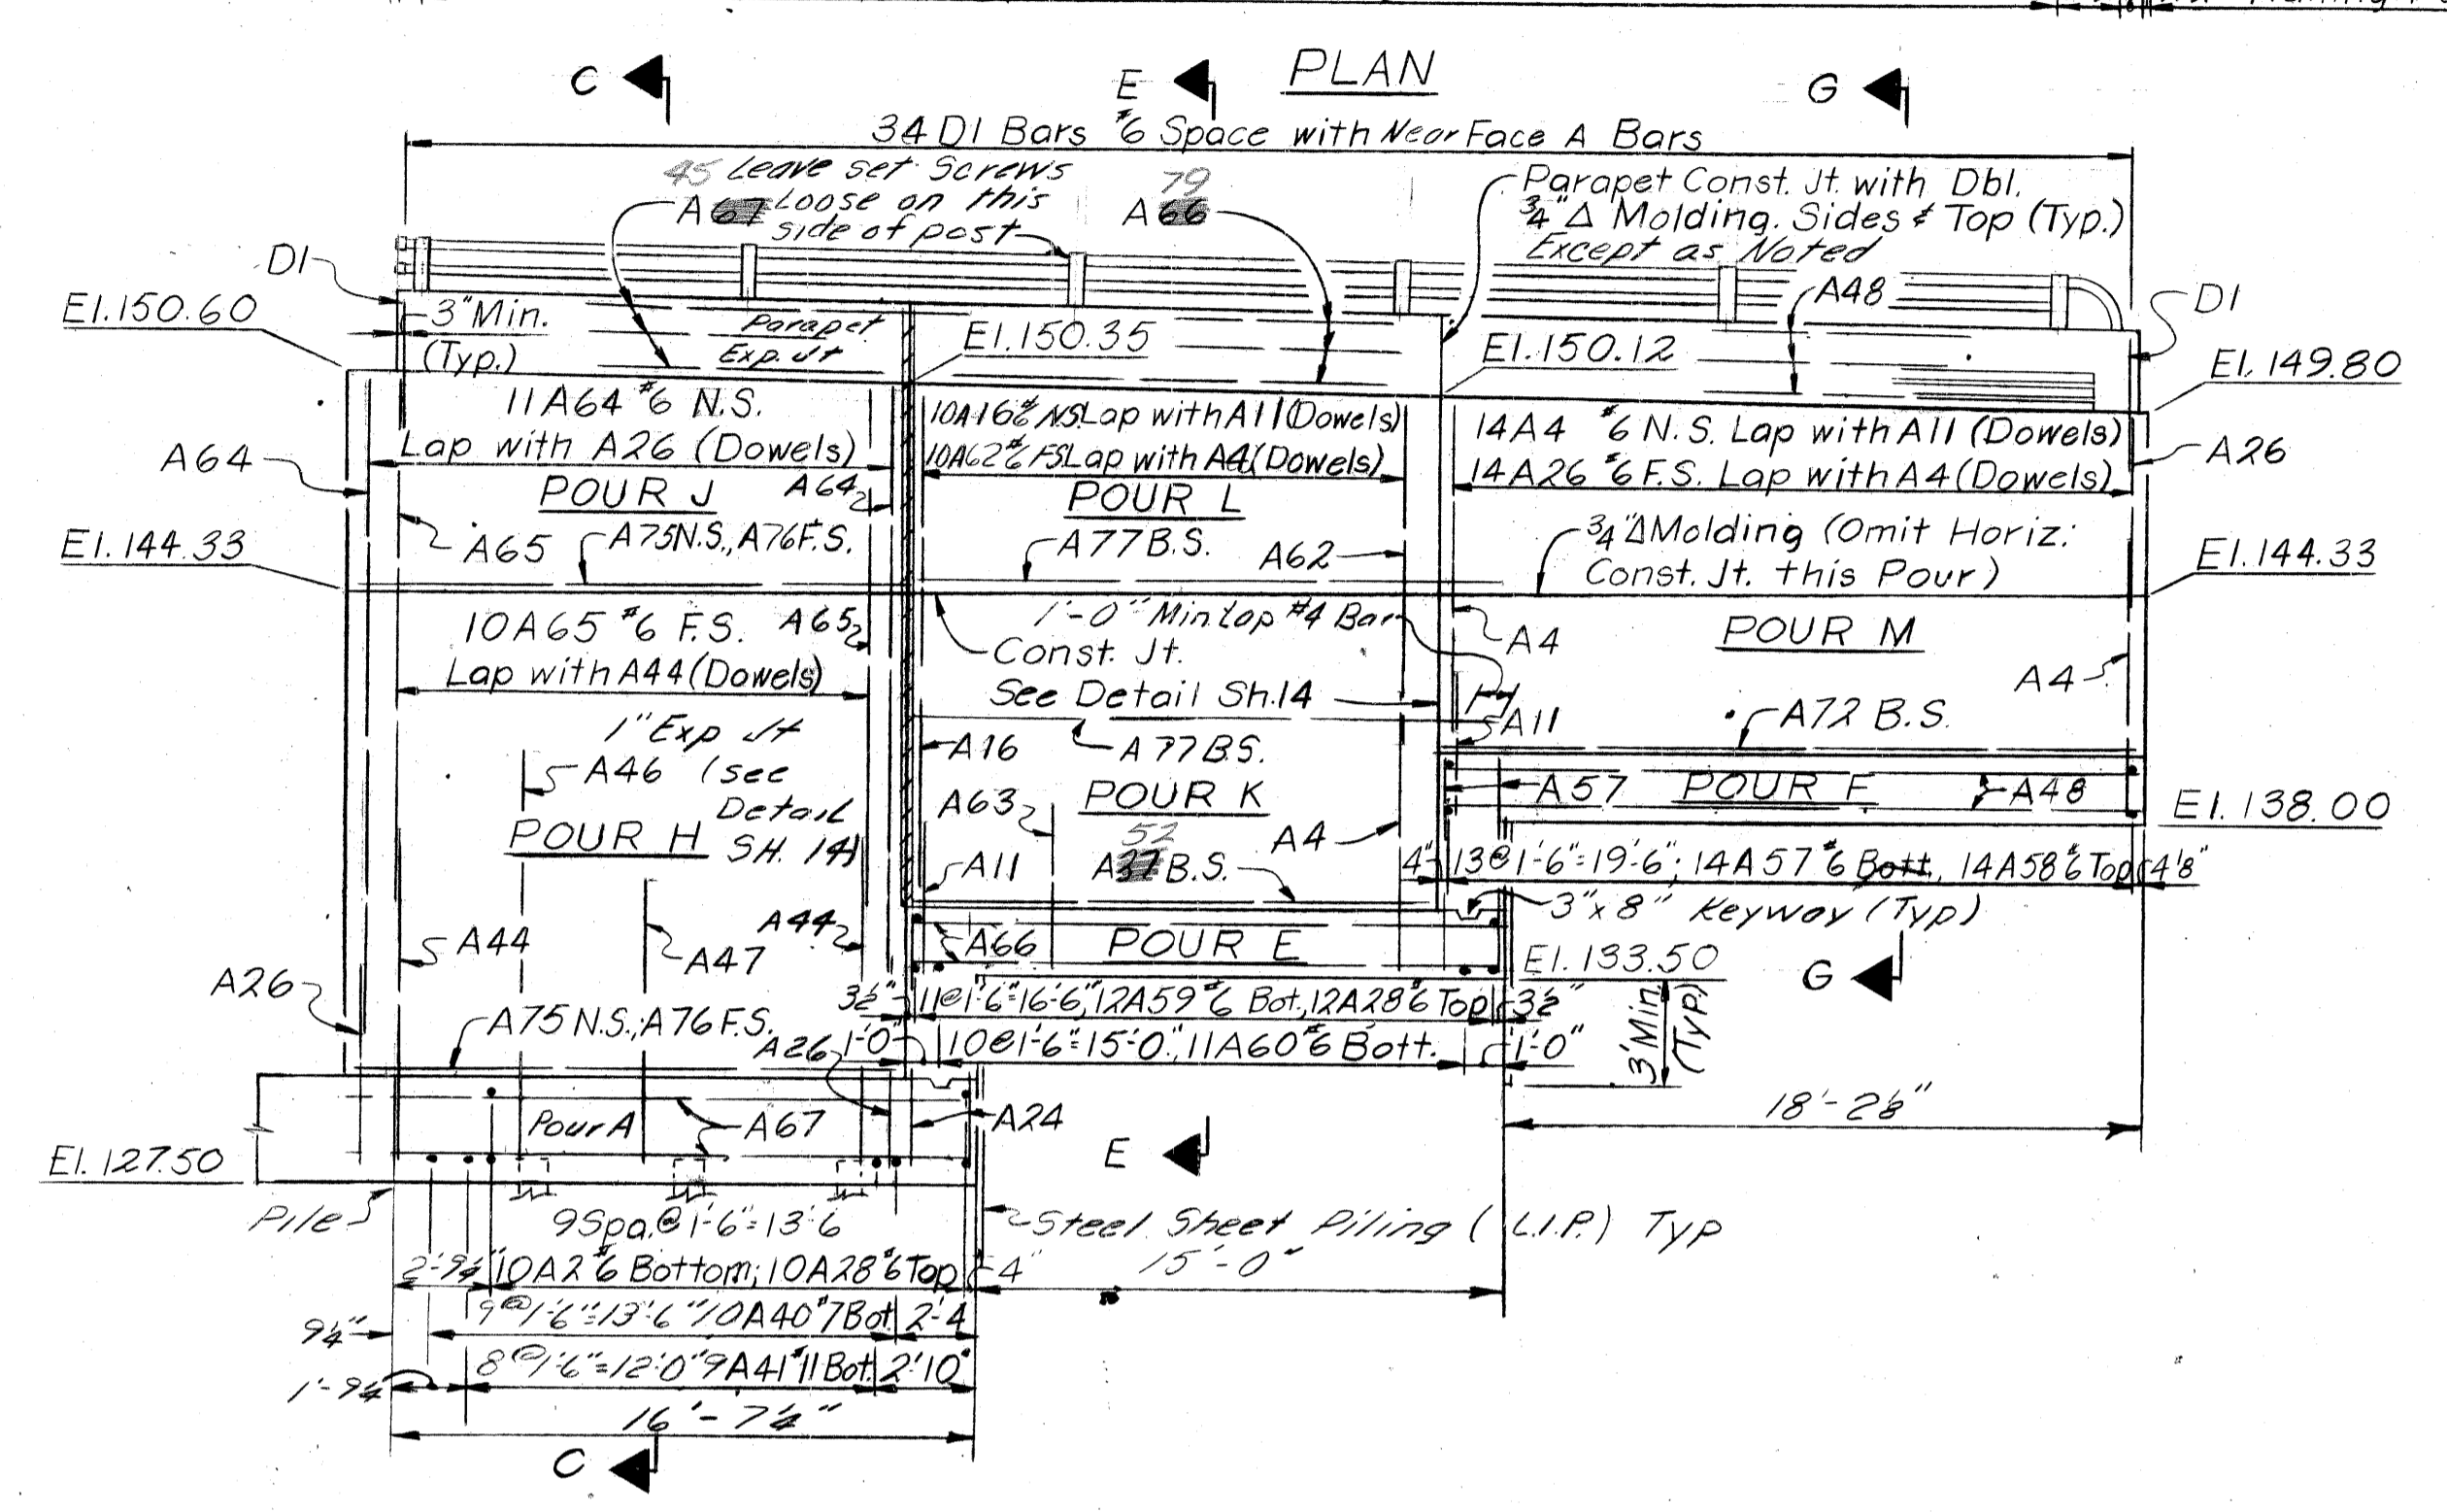 PLAN
C
E
G
34 D1 Bars #6 Space with Near Face A Bars
45 Leave set Screws
A67 Loose on this
side of post
79
A66
Parapet Const. Jt. with Dbl.
3/4"Δ Molding. Sides & Top (Typ.)
Except as Noted
D1
A48
D1
El. 150.60
3" Min.
(Typ.)
Parapet
Exp. Jt
El. 150.35
El. 150.12
El. 149.80
11 A64 #6 N.S.
Lap with A26 (Dowels)
10A16 #6 NS Lap with A11 (Dowels)
10A62 #6 FS Lap with A4 (Dowels)
14A4 #6 N.S. Lap with A11 (Dowels)
14A26 #6 F.S. Lap with A4 (Dowels)
A64
A26
POUR J
A64
POUR L
A65
A75 N.S., A76 F.S.
A77 B.S.
A62
3/4"Δ Molding (Omit Horiz.
Const. Jt. this Pour)
El. 144.33
El. 144.33
10 A65 #6 F.S.
A65
Lap with A44 (Dowels)
1'-0" Min Lap #4 Bar
Const. Jt.
See Detail Sh.14
A4
POUR M
A4
1" Exp Jt
A46 (see
Detail
SH. 14)
POUR H
A16
A77 B.S.
A11
A72 B.S.
A63
POUR K
A57
POUR F
A48
El. 138.00
52
A37 B.S.
A4
A11
4" 13@1'-6"=19'-6"; 14A57 #6 Bott., 14A58 #6 Top
3"x8" Keyway (Typ)
A44
A47
A44
A66
POUR E
El. 133.50
G
A26
3½" 11@1'-6"=16'-6", 12A59 #6 Bot., 12A28 #6 Top 3½"
A75 N.S., A76 F.S.
A26
1'-0" 10@1'-6"=15'-0", 11A60 #6 Bott. 1'-0"
3' Min.
(Typ)
Pour A
A67
A24
18'-2⅛"
El. 127.50
E
Pile
9 Spa.@1'-6"=13'-6
Steel Sheet Piling (L.I.P.) Typ
2'-9¼" 10A2 #6 Bottom; 10A28 #6 Top 4"
15'-0"
9¼" 9@1'-6"=13'-6" 10A40 #7 Bot. 2'-4
1'-9¼ 8@1'-6"=12'-0" 9A41 #11 Bot. 2'10"
16'-7¼"
C